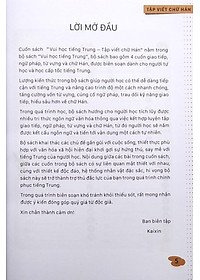 TẬP VIẾT CHỮ HÁN
LỜI MỞ ĐẦU
Cuốn sách "Vui học tiếng Trung – Tập viết chữ Hán" nằm trong
bộ sách "Vui học tiếng Trung", bộ sách bao gồm 4 cuốn giao tiếp,
ngữ pháp, từ vựng và chữ Hán, được biên soạn dành cho người tự
học và học cấp tốc tiếng Trung.
Lượng kiến thức trong bộ sách giúp người học có thể dễ dàng tiếp
cận với tiếng Trung và nâng cao trình độ một cách nhanh chóng,
tăng cường vốn từ vựng, củng cố ngữ pháp, trau dồi kỹ năng giao
tiếp, hiểu sâu hơn về chữ Hán.
Trong quá trình học, bộ sách hướng cho người học tích lũy được
nhiều tri thức ngôn ngữ văn hóa thông qua việc kết hợp luyện tập
giao tiếp, ngữ pháp, từ vựng và chữ Hán, từ đó người học sẽ nắm
được kết cấu ngôn ngữ và tiến tới vận dụng một cách tự nhiên.
Bộ sách khai thác các chủ đề gần gũi với cuộc sống, thiết thực phù
hợp với văn hóa xã hội hiện đại khơi gợi sự hứng thú, say mê với
tiếng Trung của người học. Nội dung giữa các bài trong cuốn sách,
giữa các cuốn trong bộ sách có sự liên quan mật thiết với nhau,
cùng với thiết kế độc đáo, hệ thống nhân vật đặc sắc, hi vọng bộ
sách này sẽ trở thành trợ thủ đắc lực của bạn trong quá trình chinh
phục tiếng Trung.
Trong quá trình biên soạn khó tránh khỏi thiếu sót, rất mong nhận
được ý kiến đóng góp quý báu từ độc giả.
Xin chân thành cảm ơn!
Ban biên tập
Kaixin
5